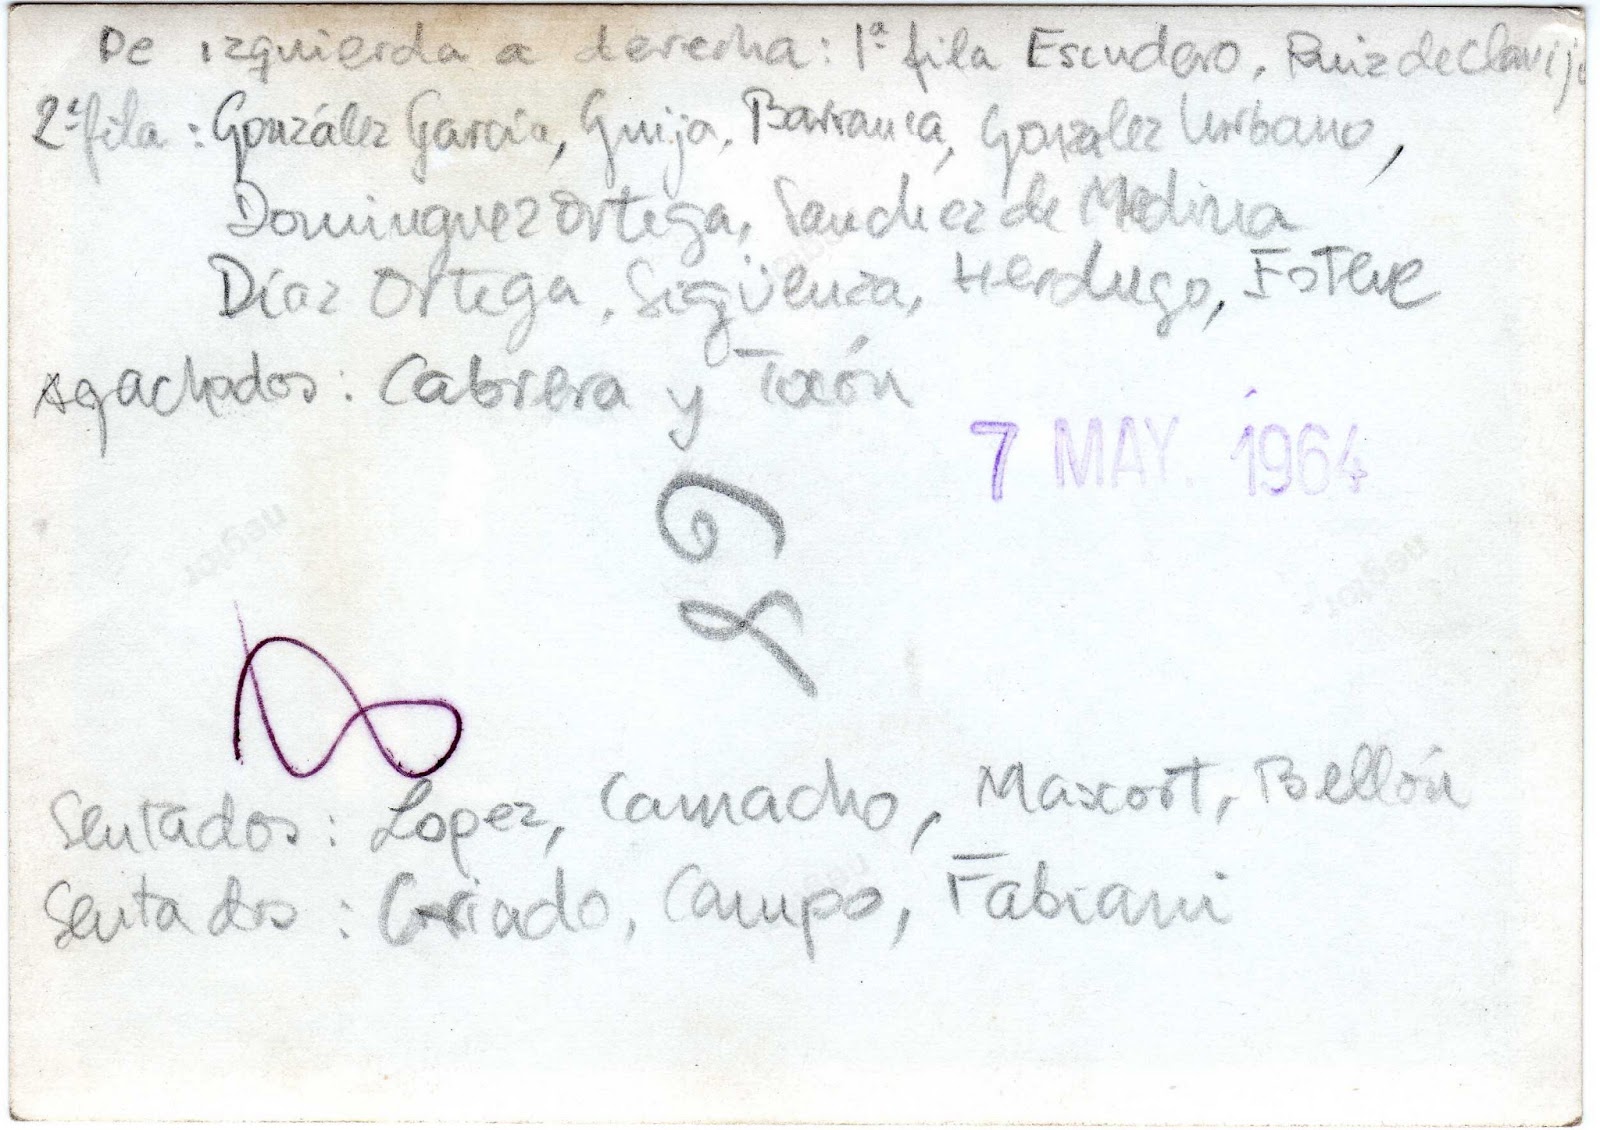 De izquierda a derecha: 1ª fila Escudero, Ruiz de Clavijo
2ª fila: González García, Guija, Barranca, González Urbano,
Dominguez Ortega, Sanchez de Medina
Díaz Ortega, Sigüenza, Herdugo, Esteve
Agachados: Cabrera y Toxón
7 MAY. 1964
Sentados: Lopez, Camacho, Maxort, Bellón
Sentados: Criado, Campo, Fabiani